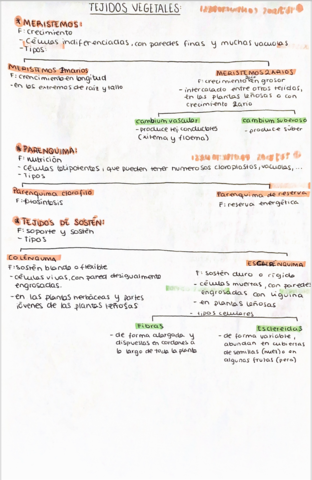 TEJIDOS VEGETALES:
* MERISTEMOS:
F: crecimiento
- Células indiferenciadas, con paredes finas y muchas vacuolas
- Tipos:
MERISTEMOS 1MARIOS
F: crecimiento en longitud
- en los extremos de raíz y tallo
MERISTEMOS 2ARIOS
F: crecimiento en grosor
- intercalado entre otros tejidos,
en las plantas leñosas o con
crecimiento 2ario
cambium vascular
- produce tej. conductores
(xilema y floema)
cambium suberoso
- produce súber
* PARÉNQUIMA:
F: nutrición
- Células totipotentes, que pueden tener numerosos cloroplastos, vacuolas, ...
- Tipos
Parénquima clorofílico
F: fotosíntesis
Parénquima de reserva
F: reserva energética
* TEJIDOS DE SOSTÉN:
F: soporte y sostén
- Tipos
COLÉNQUIMA
F: sostén blando o flexible
- células vivas, con pared desigualmente
engrosadas.
- en las plantas herbáceas y partes
jóvenes de las plantas leñosas
ESCLERÉNQUIMA
F: sostén duro o rígido
- células muertas, con paredes
engrosadas con lignina
- en plantas leñosas
- tipos celulares
Fibras
- de forma alargada y
dispuestas en cordones a
lo largo de toda la planta
Esclereidas
- de forma variable,
abundan en cubiertas
de semillas (nuez) o en
algunas frutas (pera)